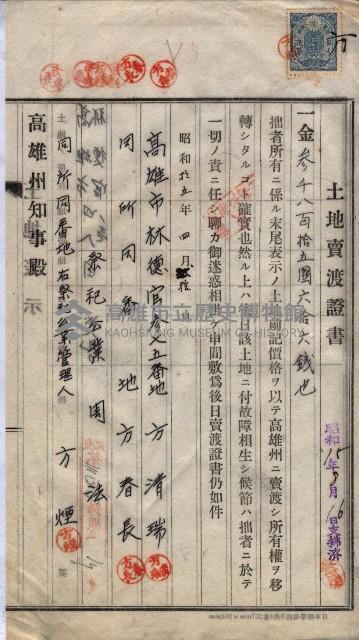 土地賣渡證書
一金參千八百拾五圓六拾六錢也
拙者所有ニ係ル末尾表示ノ土地前記價格ヲ以テ高雄州ニ賣渡シ所有權ヲ移
轉シタルコト確實也然ル上ハ後日該土地ニ付故障相生シ候節ハ拙者ニ於テ
一切ノ責ニ任シ聊カ御迷惑相掛ケ申間敷為後日賣渡證書仍如件
昭和拾五年四月 日
高雄市林德官 五番地 方清瑞
同所同番地 方春長
祭祀公業 周法
同所同番地右祭祀公業管理人 方煙
高雄州知事殿
昭和15年 月16日支拂濟
高雄市立歷史博物館
KAOHSIUNG MUSEUM OF HISTORY